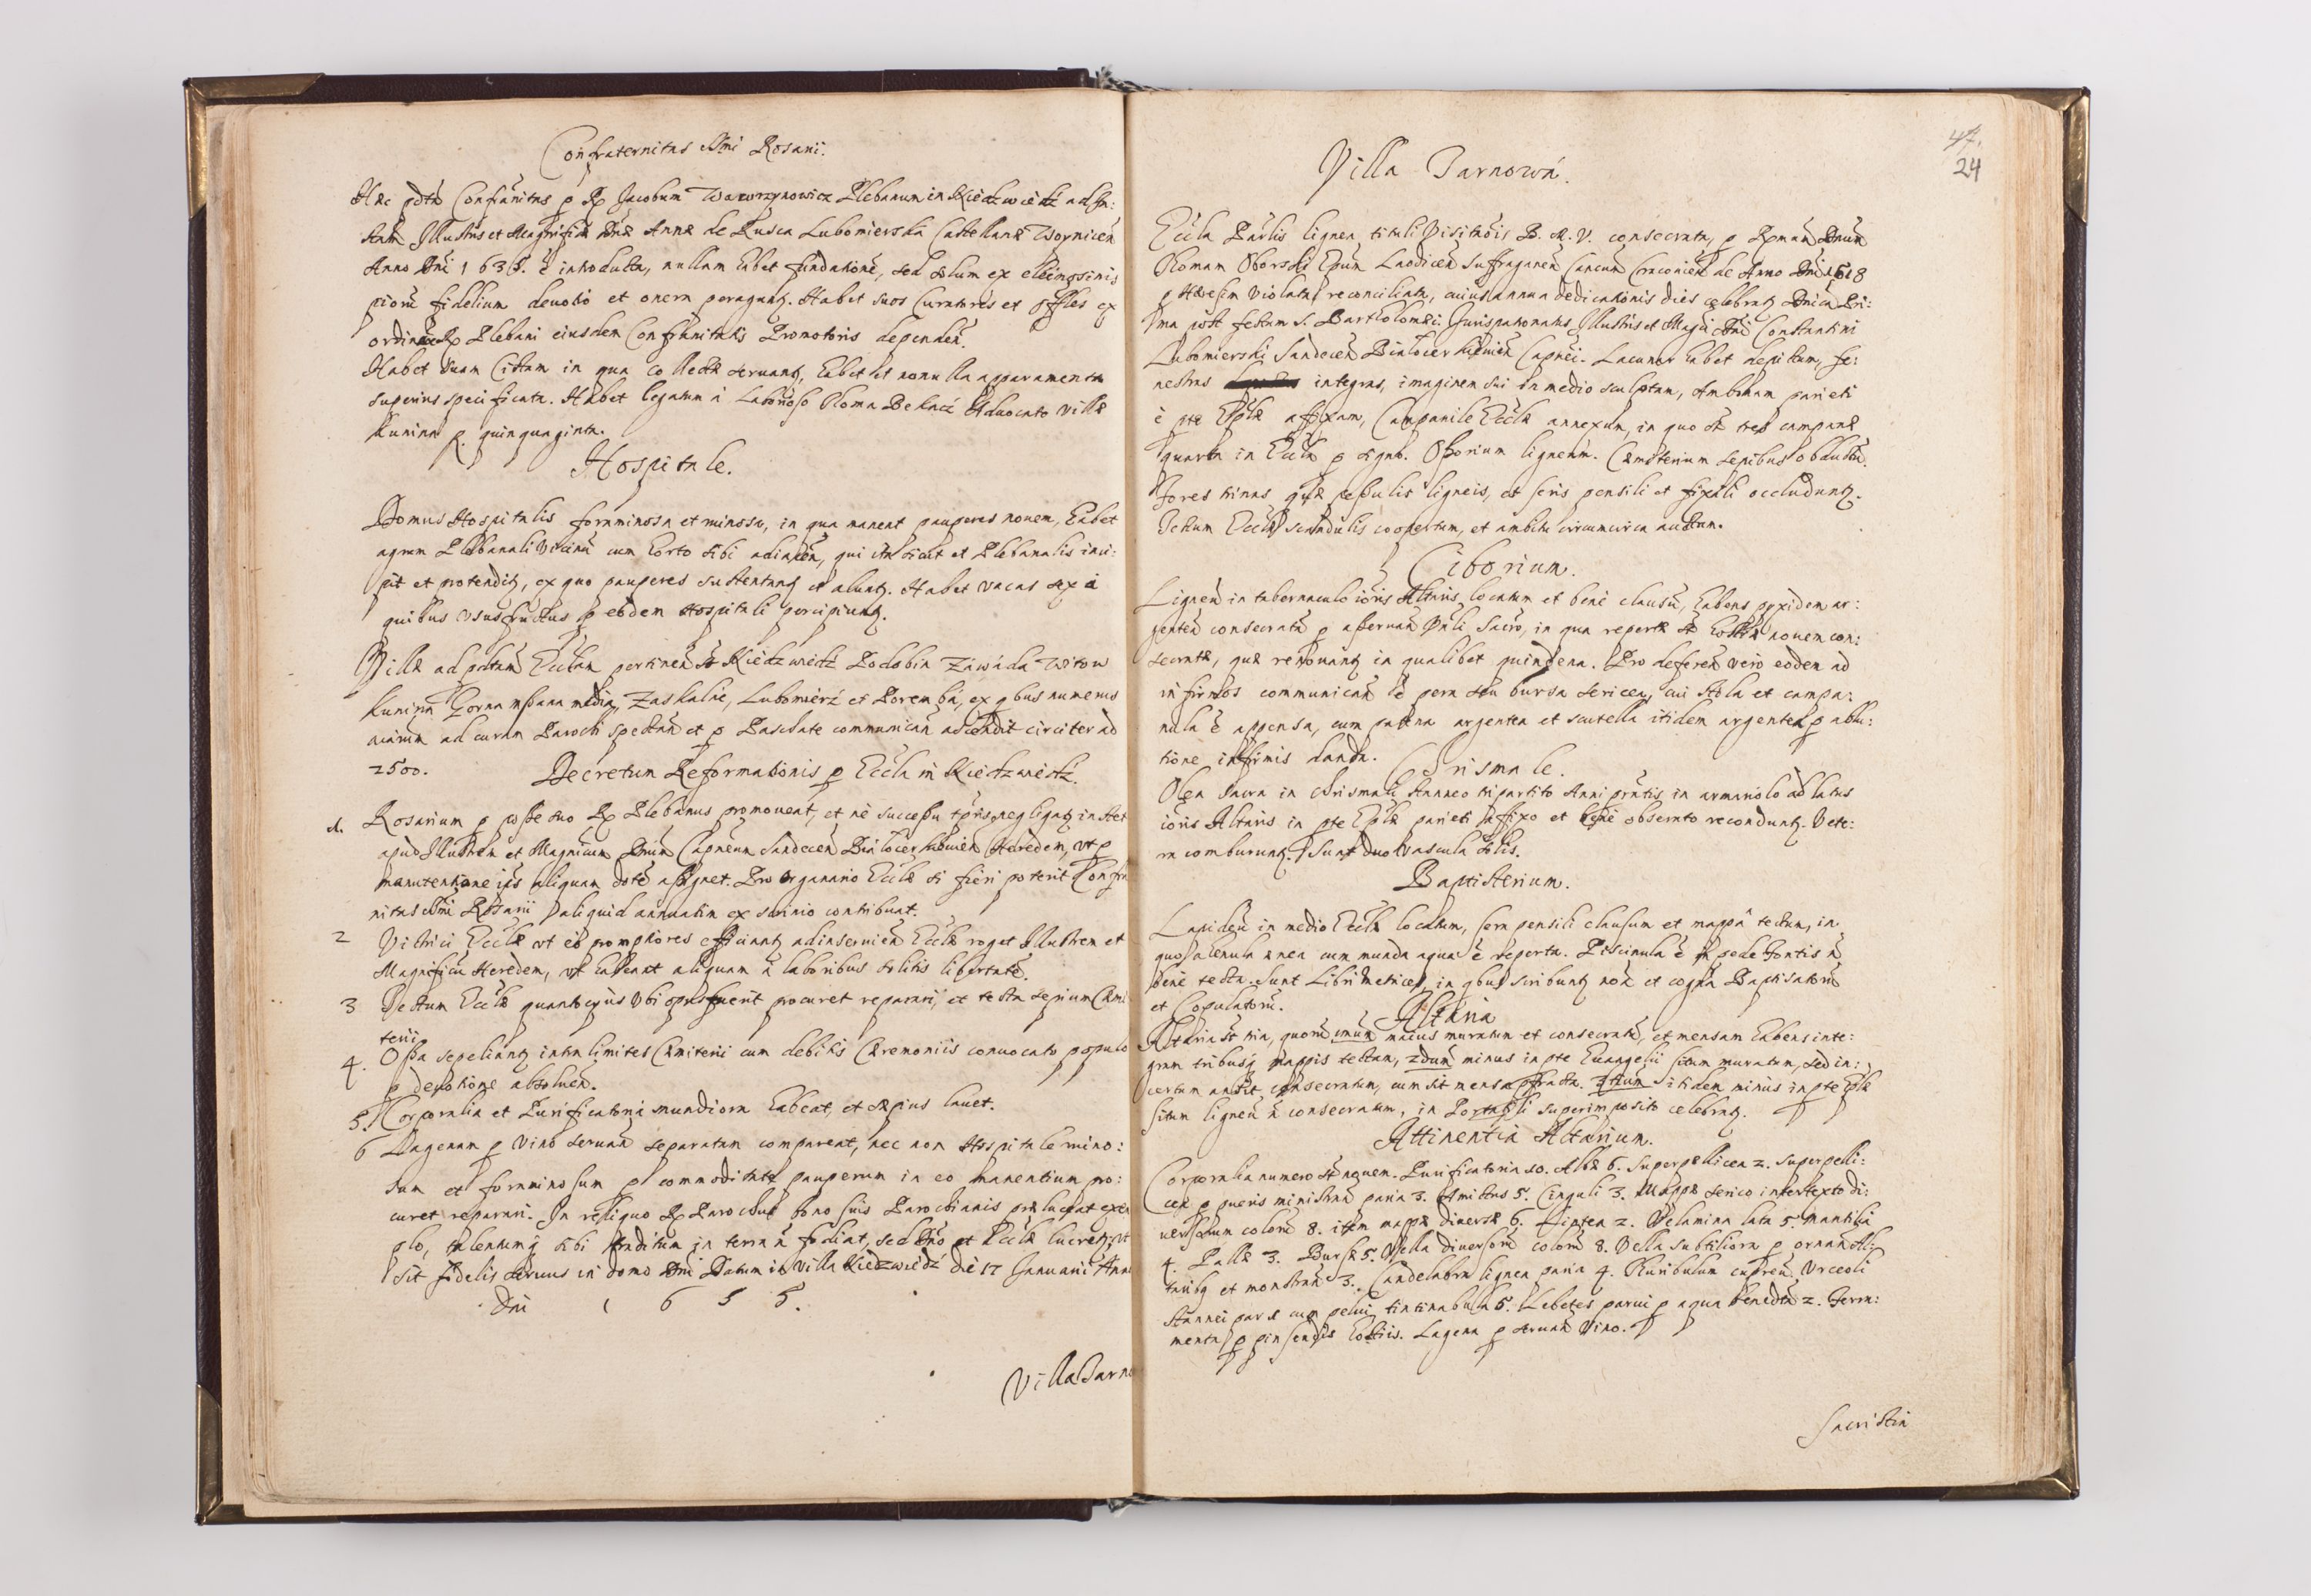 Confraternitas SSmi Rosarii.
Hæc pdta Confrañitas p Rp Jacobum Wawrzynowicz Plebanum in Niedzwiedz ad In:
stam Illustris et Magnificæ Dnæ Annæ de Rusca Lubomierska Castellanæ Woynicen
Anno Dni 163 . ẽ introducta, nullam habet fundationẽ, sed solum ex eleemosinis
piorũ fidelium devotio et onera peragunt. Habet suos Curatores et offles ex
ordine Rp Plebani eiusdem Confrãnitatis Promotoris dependeñ.
Habet suam Cistam in qua collectæ servant, habet et nonnulla apparamenta
superius specificata. Habet legatum à Laborioso Thoma Bekacz Advocato villæ
Kunina p. quinquaginta.
Hospitale.
Domus Hospitalis foraminosa et ruinosa, in qua manent pauperes novem, habet
agrum Plebanali vicinũ cum horto sibi adiacen, qui ita sicut et Plebanalis inci:
pit et protendit, ex quo pauperes sustentant et alunt. Habet vacas sex à
quibus Ususfructus p eõdem Hospitali percipiunt.
Villæ ad pdtam Ecclam pertinen st Niedzwiedz Podobin Zawada Witow
Kunina Gorna mszana media, Zaskalie, Lubomierz et Porembá, ex qbus numerus
aiarum ad curam Parochi spectan et p Paschate communican ascendit circiter ad
2500. Decretum Reformationis p Eccla in Niedzwiedz.
1. Rosarium p posse suo Rp Plebanus promoveat, et nè successu tpris negligat instet
apud Illustrem et Magnicum Dnũm Capneum Sandecen Białocerkievien Heredem, vt p
manutentione ipius aliquam dotẽ assignet. Pro organario Ecclæ si fieri poterit Confra
nitas SSmi Rosarii aliquid annuatim ex scrinio contribuat.
2 Vitrici Ecclæ vt eò promptiores efficiant ad inservien Ecclæ roget Illustrem et
Magnificũ Heredem, vt habeant aliquam à laboribus solitis libertatẽ.
3 Tectum Ecclæ quantocyus Ubi opus fuerit procuret reparari, et tecta sepium Cæmi
terii
4. Ossa sepeliant intra limites Cæmiterii cum debitis Cæremoniis convocato populo
p devotione absolven.
5. Corporalia et Purificatoria mundiora habeat, et sæpius lavet.
6 Lagenam p vino servan separatam compareat, nec non Hospitale ruino:
sum et foraminosum p commoditate pauperum in eo manentium pro:
curet reparari. In reliquo Rp Parochus bono suis Parochianis præluceat exem
plo, talentumq sibi traditum in terra ñ fodiat, sed Dño et Ecclæ lucret, vt
sit fidelis servus in domo Dni Datum in Villa Niedzwiedz die 17 Januarii Anno
Dni 1 6 5 5.
Villa Tarno
47.
24
Villa Tarnowá.
Eccla Parlis lignea tituli Visitaõis B. M. V. consecrata, p Rmum Dnum
Thomam Oborski Epum Laodicen Suffraganeũ Cancũm Cracovien de Anno Dni 1618
p Hæresim violata reconciliata, cuius annua dedicationis dies celebrat Dnica Pri:
ma post festum S. Bartholomæi. Jurispatronatus Illustris et Magci Dni Constantini
Lubomierski Sandecen Białocerkievien Capnei. Lacunar habet depictum, fe:
nestras integras, imaginem sui in medio sculptam, Ambonam parieti
è pte Eplæ affixam, Campanile Ecclæ annexum, in quo st tres campanæ
quarta in Eccla p signo. Ossorium ligneum. Cæmiterium sepibus obductũ.
Fores trinas quæ pessulis ligneis, et seris pensili et fixili occludunt.
Tectum Ecclæ scandulis coopertum, et ambitu circumcirca auctum.
Ciborium.
Ligneũ in tabernaculo ioris Altaris locatum et benè clausũ, habens pyxidem ar:
genteã consecratã p asservan Vnli Sacro, in qua repertæ st hostiæ novem con:
secratæ, quæ renovant in qualibet quindena. Pro deferen verò eodem ad
infirmos communican ẽ pera seu bursa sericea, cui stola et campa:
nula ẽ appensa, cum patina argentea et scutella itidem argentea p ablu:
tione infirmis danda.
Chrismale.
Olea Sacra in Chrismali stanneo tripartito Anni prntis in armariolo ad latus
ioris Altaris in pte Eplæ parieti affixo et benè obserato recondunt. Vete:
ra comburunt. Sunt duo vascula Solis.
Baptisterium.
Lapideũ in medio Ecclæ locatum, sera pensili clausum et mappâ tectum, in
quo ahenula ænea cum munda aqua ẽ reperta. Piscinula ẽ in pede Fontis ñ
benè tecta. Sunt Libri Metrices, in qbus scribunt noa et cogna Baptisatorũ
et Copulatorũ.
Altaria
Altaria st tria, quorũ vnum maius muratum et consecratũ, et mensam habens inte:
gram tribusq mappis tectam, 2dum minus in pte Evangelii situm muratum, sed in:
certum an sit consecratum, cum sit mensa pfracta. 3tium itidem minus in pte Eplæ
situm ligneũ ñ consecratum, in Portatili superimposito celebrat.
Attinentia Altarium.
Corporalia numero st novem. Purificatoria 10. Albæ 6. Superpellicea 2. Superpelli:
cea p pueris ministran paria 3. Amictus 5. Cinguli 3. Mappæ serico intertexto di:
versorum colorũ 8. item mappæ diversæ 6. Lintea 2. Velamina lata 5. Mantilia
4. Pallæ 3. Bursæ 5. Vella diversorũ colorũ 8. Vella subtiliora p ornan Al:
taribq et monstran 3. Candelabra lignea paria 4. Thuribulum cupreũ. Urceoli
stannei par 1 cum pelvi, tintinabula 5. Lebetes parvi p aqua benedcta 2. Ferra:
menta p pinsendis hostiis. Lagena p servan vino.
Sacristia